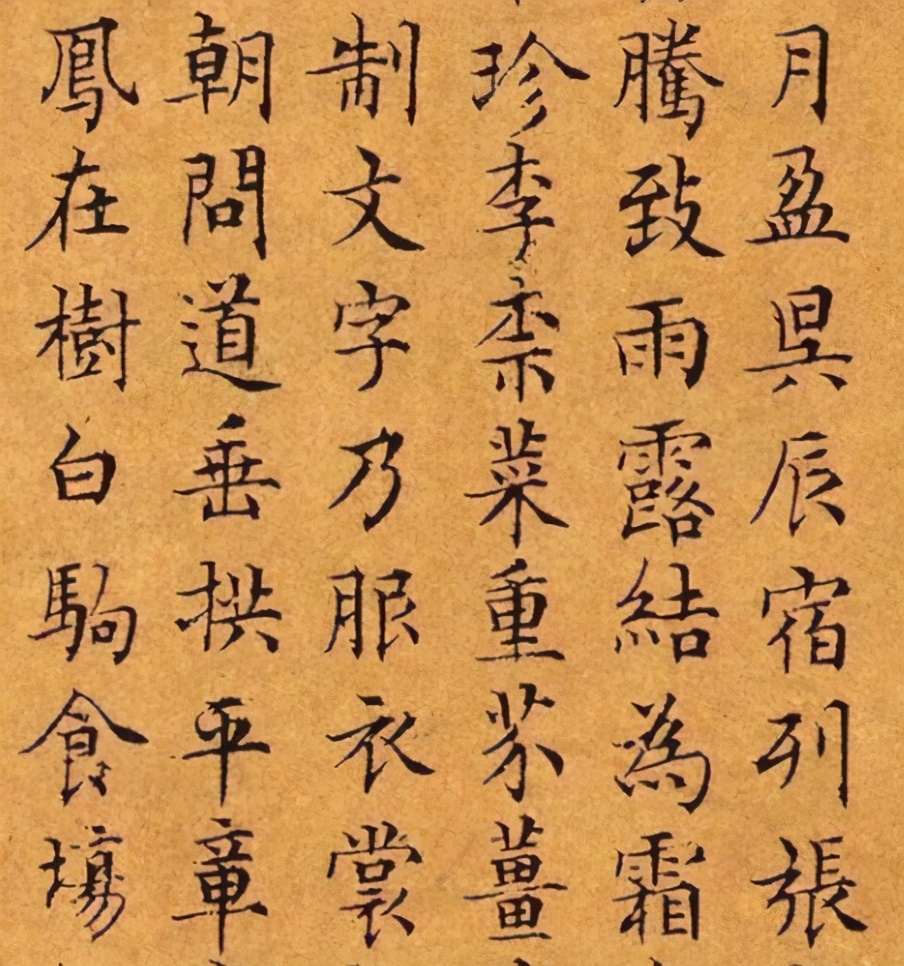 月盈昃辰宿列張
騰致雨露結為霜
珍李柰菜重芥薑
制文字乃服衣裳
朝問道垂拱平章
鳳在樹白駒食場